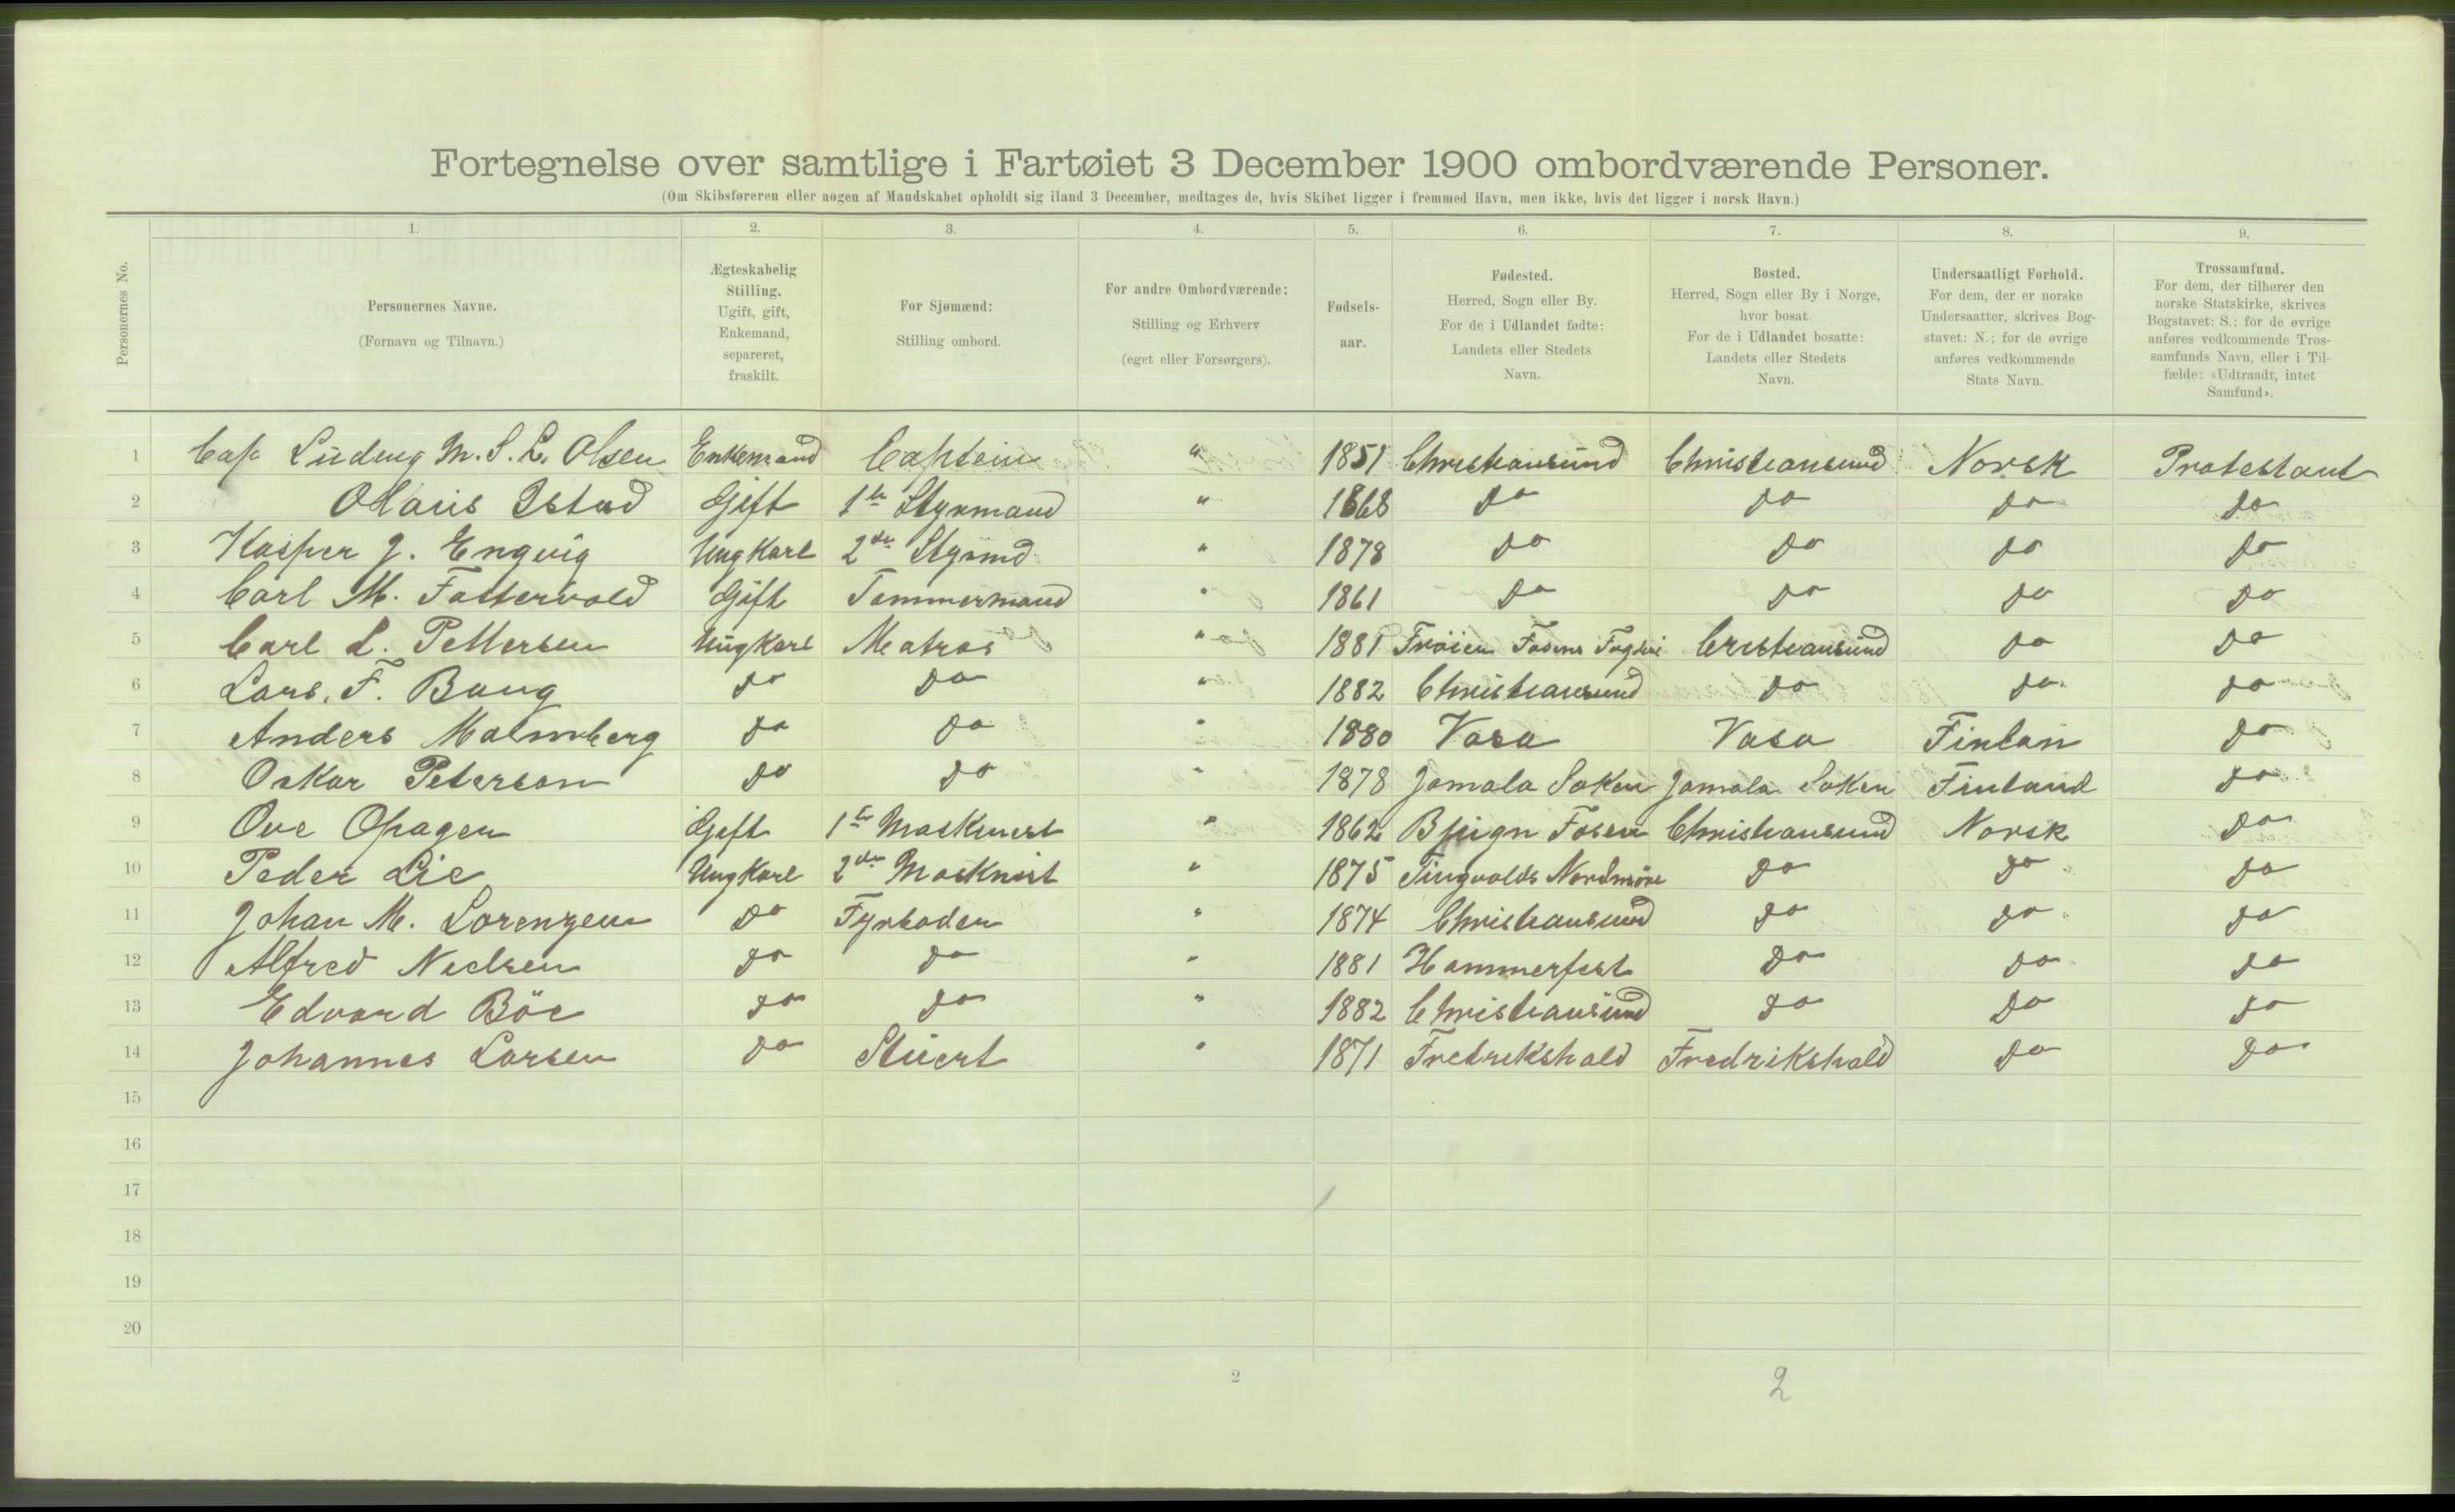 Fortegnelse over samtlige i Fartøiet 3 December 1900 ombordværende Personer.
(Om Skibsføreren eller nogen af Mandskabet opholdt sig iland 3 December, medtages de, hvis Skibet ligger i fremmed Havn, men ikke, hvis det ligger i norsk Havn.)
Personernes No.
1. 2. 3. 4. 5. 6. 7. 8. 9.
Personernes Navne.
(Fornavn og Tilnavn.)
Ægteskabelig
Stilling.
Ugift, gift,
Enkemand,
separeret,
fraskilt.
For Sjømænd:
Stilling ombord.
For andre Ombordværende:
Stilling og Erhverv
(eget eller Forsørgers).
Fødsels-
aar.
Fødested.
Herred, Sogn eller By.
For de i Udlandet fødte:
Landets eller Stedets
Navn.
Bosted.
Herred, Sogn eller By i Norge,
hvor bosat.
For de i Udlandet bosatte:
Landets eller Stedets
Navn.
Undersaatligt Forhold.
For dem, der er norske
Undersaatter, skrives Bog-
stavet: N.; for de øvrige
anføres vedkommende
Stats Navn.
Trossamfund.
For dem, der tilhører den
norske Statskirke, skrives
Bogstavet: S.; for de øvrige
anføres vedkommende Tros-
samfunds Navn, eller i Til-
fælde: «Udtraadt, intet
Samfund».
1 Cap Ludvig M. S. L. Olsen Enkemand Captein " 1851 Christiansund Christiansund Norsk Protestant
2 Olaus Istad Gift 1ste Styrmand " 1868 do do do do
3 Kasper J. Engvig Ungkarl 2den Styrmd " 1878 do do do do
4 Carl M. Fattervold Gift Tømmermand " 1861 do do do do
5 Carl L. Pettersen Ungkarl Matros " 1881 Frøien Fosens Cristiansund do do
6 Lars. F. Bang do do " 1882 Christiansund do do do
7 Anders Malmberg do do " 1880 Vasa Vasa Finlan do
8 Oskar Peterson do do " 1878 Jomala Soken Jomala Soken Finland do
9 Ove Opagen Gift 1ste Maskinist " 1862 Bjugn Fosen Christiansund Norsk do
10 Peder Lie Ungkarl 2den Maskinist " 1875 Tingvolds Nordmöre do do do
11 Johan M. Lorenzen do Fyrböder " 1874 Christiansund do do do
12 Alfred Nielsen do do " 1881 Hammerfest do do do
13 Edvard Böe do do " 1882 Christiansund do do do
14 Johannes Larsen do Stuert " 1871 Fredrikshald Fredrikshald do do
15
16
17
18
19
20
2 2